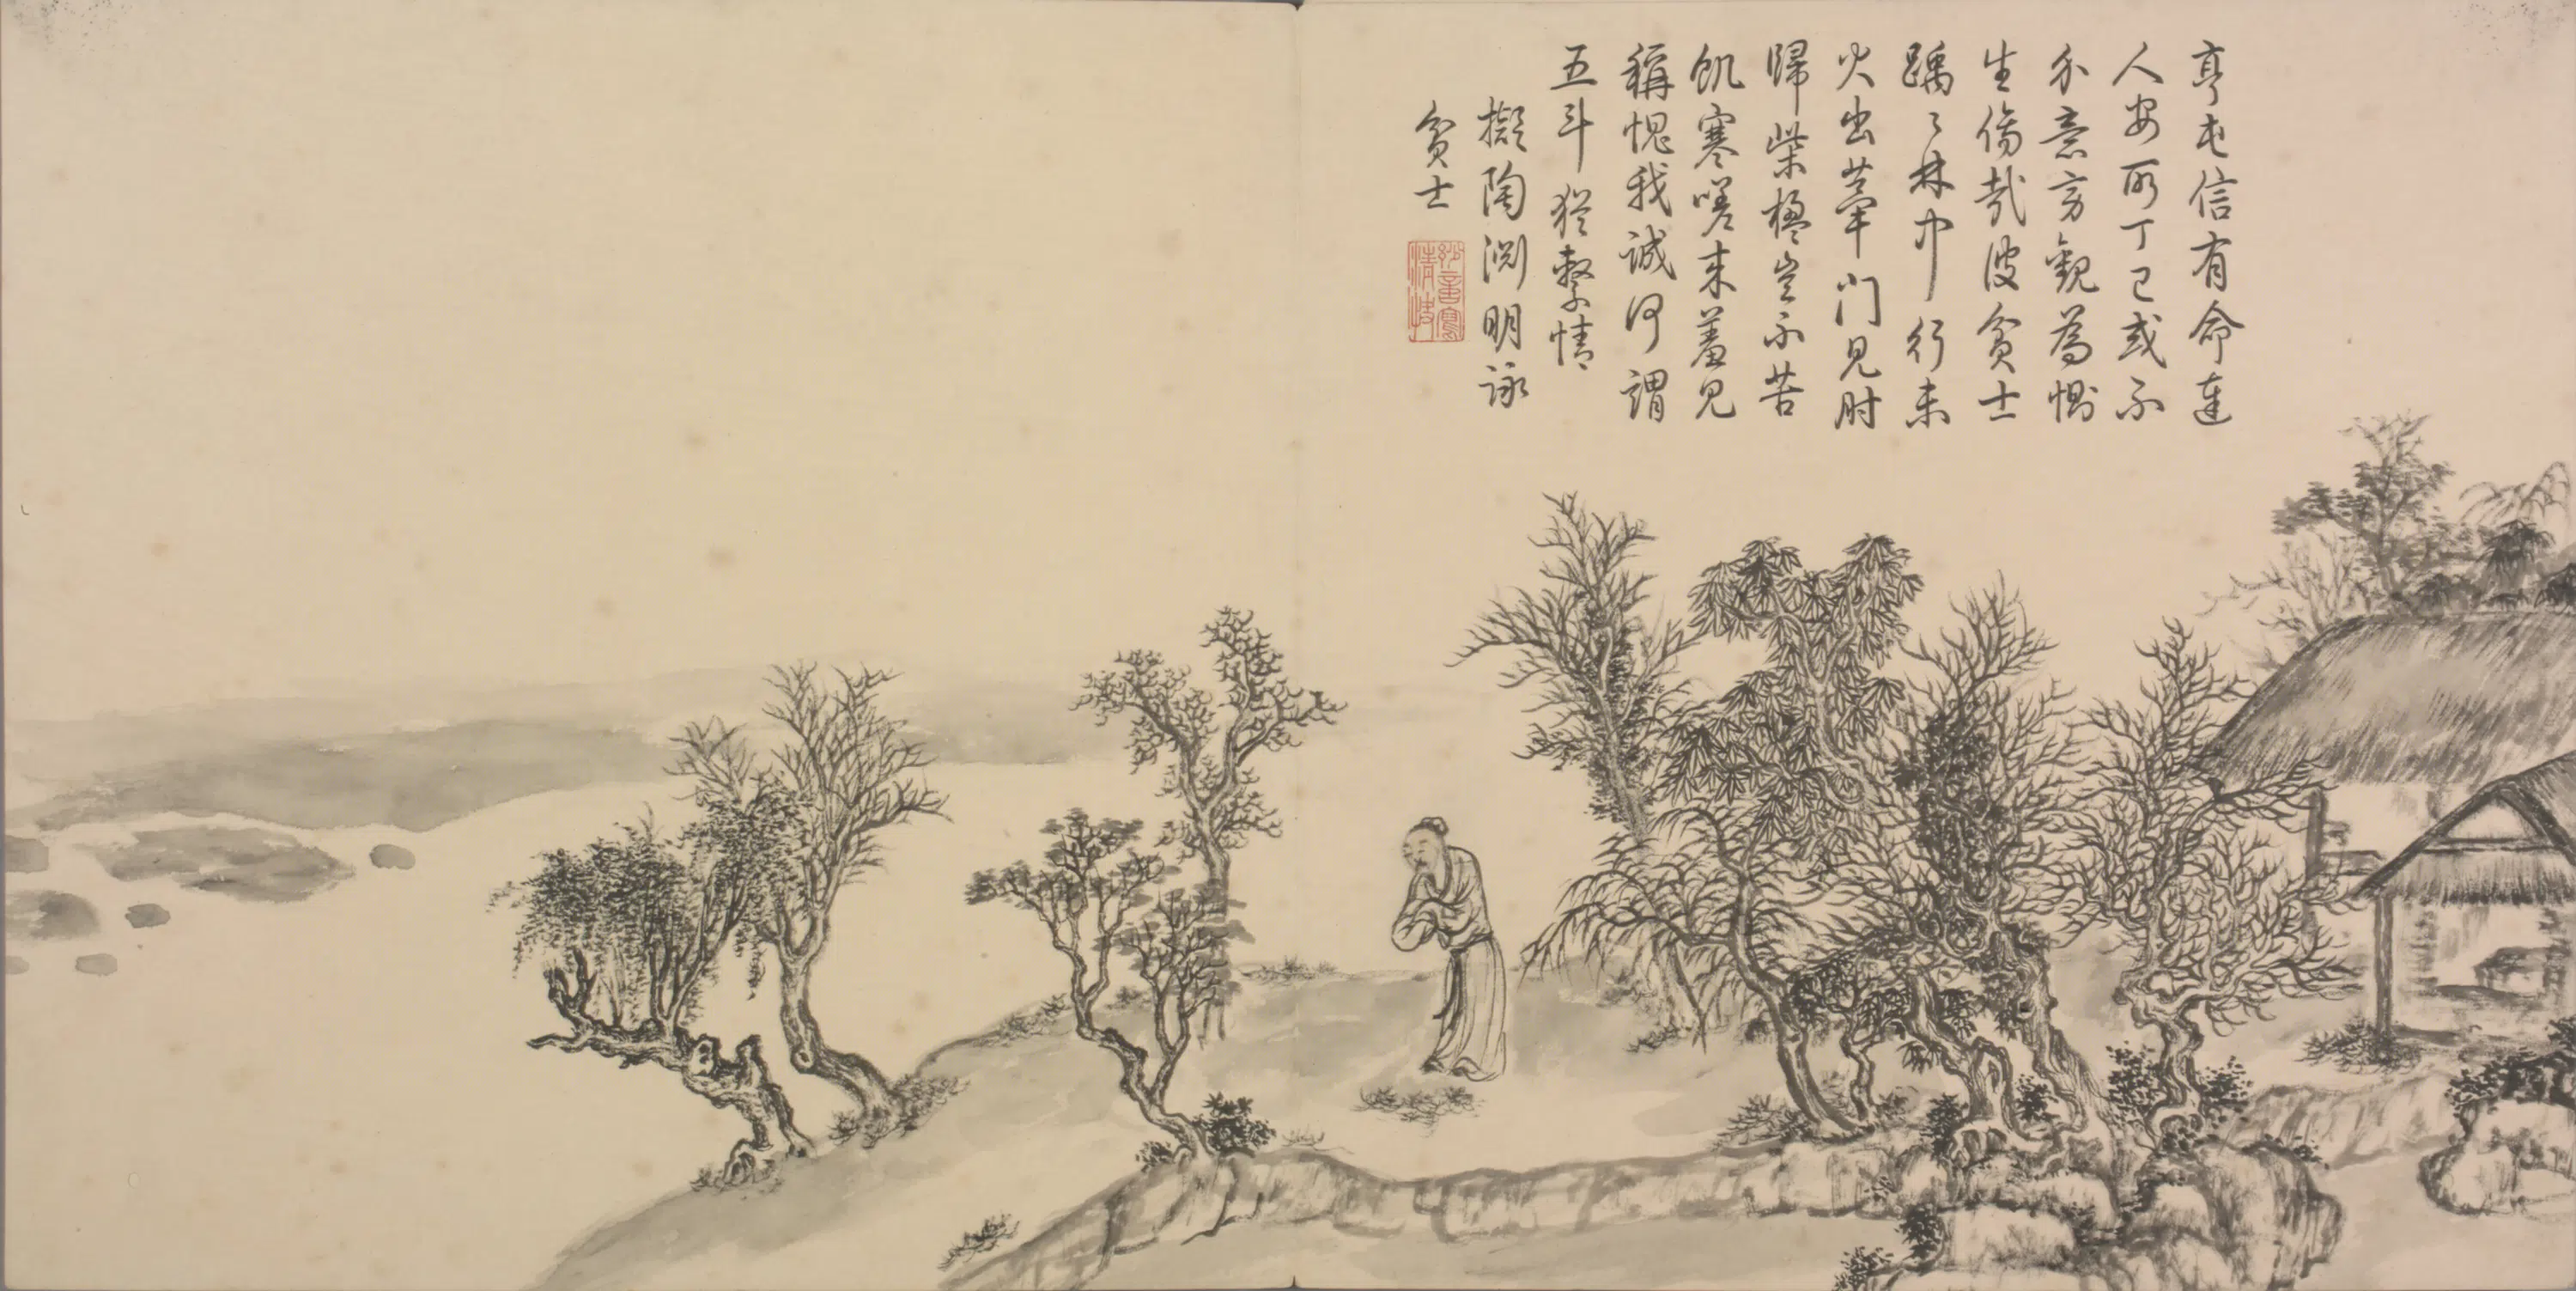 亨屯信有命達
人安所丁己或不
介意旁觀為惻
生傷哉彼貧士
踽〻林中行未
火出蓽門見肘
歸柴楹豈不苦
飢寒嗟來羞見
稱愧我誠何謂
五斗猶繫情
擬陶淵明詠
貧士